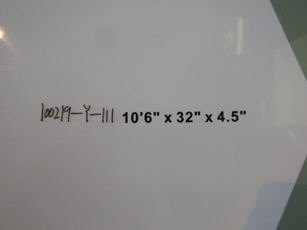 100219-Y-111 10'6" x 32" x 4.5"